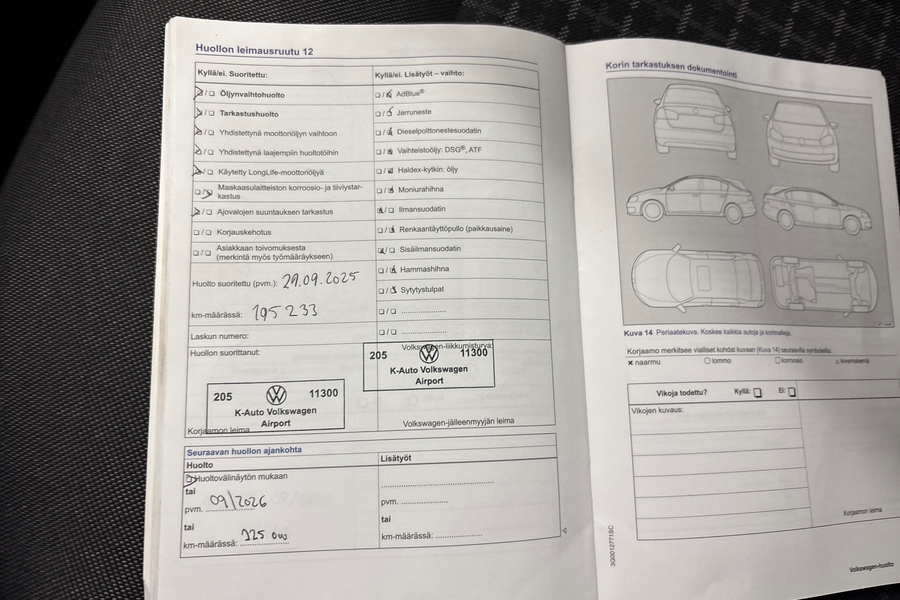 Huollon leimausruutu 12
Kyllä/ei. Suoritettu:
Öljynvaihtohuolto
Tarkastushuolto
Yhdistettynä moottoriöljyn vaihtoon
Yhdistettynä laajempiin huoltotöihin
Käytetty LongLife-moottoriöljyä
Maakaasulaitteiston korroosio- ja tiiviystar-
kastus
Ajovalojen suuntauksen tarkastus
Korjauskehotus
Asiakkaan toivomuksesta
(merkintä myös työmääräykseen)
Huolto suoritettu (pvm.): 29.09.2025
km-määrässä: 195 233
Laskun numero:
Huollon suorittanut:
205 11300
K-Auto Volkswagen
Airport
Korjaamon leima
Kyllä/ei. Lisätyöt – vaihto:
AdBlue®
Jarruneste
Dieselpolttonestesuodatin
Vaihteistoöljy: DSG®, ATF
Haldex-kytkin: öljy
Moniurahihna
Ilmansuodatin
Renkaantäyttöpullo (paikkausaine)
Sisäilmansuodatin
Hammashihna
Sytytystulpat
Volkswagen-liikkumisturva:
205 11300
K-Auto Volkswagen
Airport
Volkswagen-jälleenmyyjän leima
Seuraavan huollon ajankohta
Huolto
Huoltovälinäytön mukaan
tai
pvm. 09/2026
tai
km-määrässä:
Lisätyöt
pvm.
tai
km-määrässä:
Korin tarkastuksen dokumentointi
Kuva 14 Periaatekuva. Koskee kaikkia autoja ja korimalleja.
Korjaamo merkitsee vialliset kohdat kuvaan (Kuva 14) seuraavilla symboleilla:
naarmu
lommo
korroosio
kiveniskemä
Vikoja todettu? Kyllä: Ei:
Vikojen kuvaus:
Korjaamon leima
3G0012771SC
Volkswagen-huolto